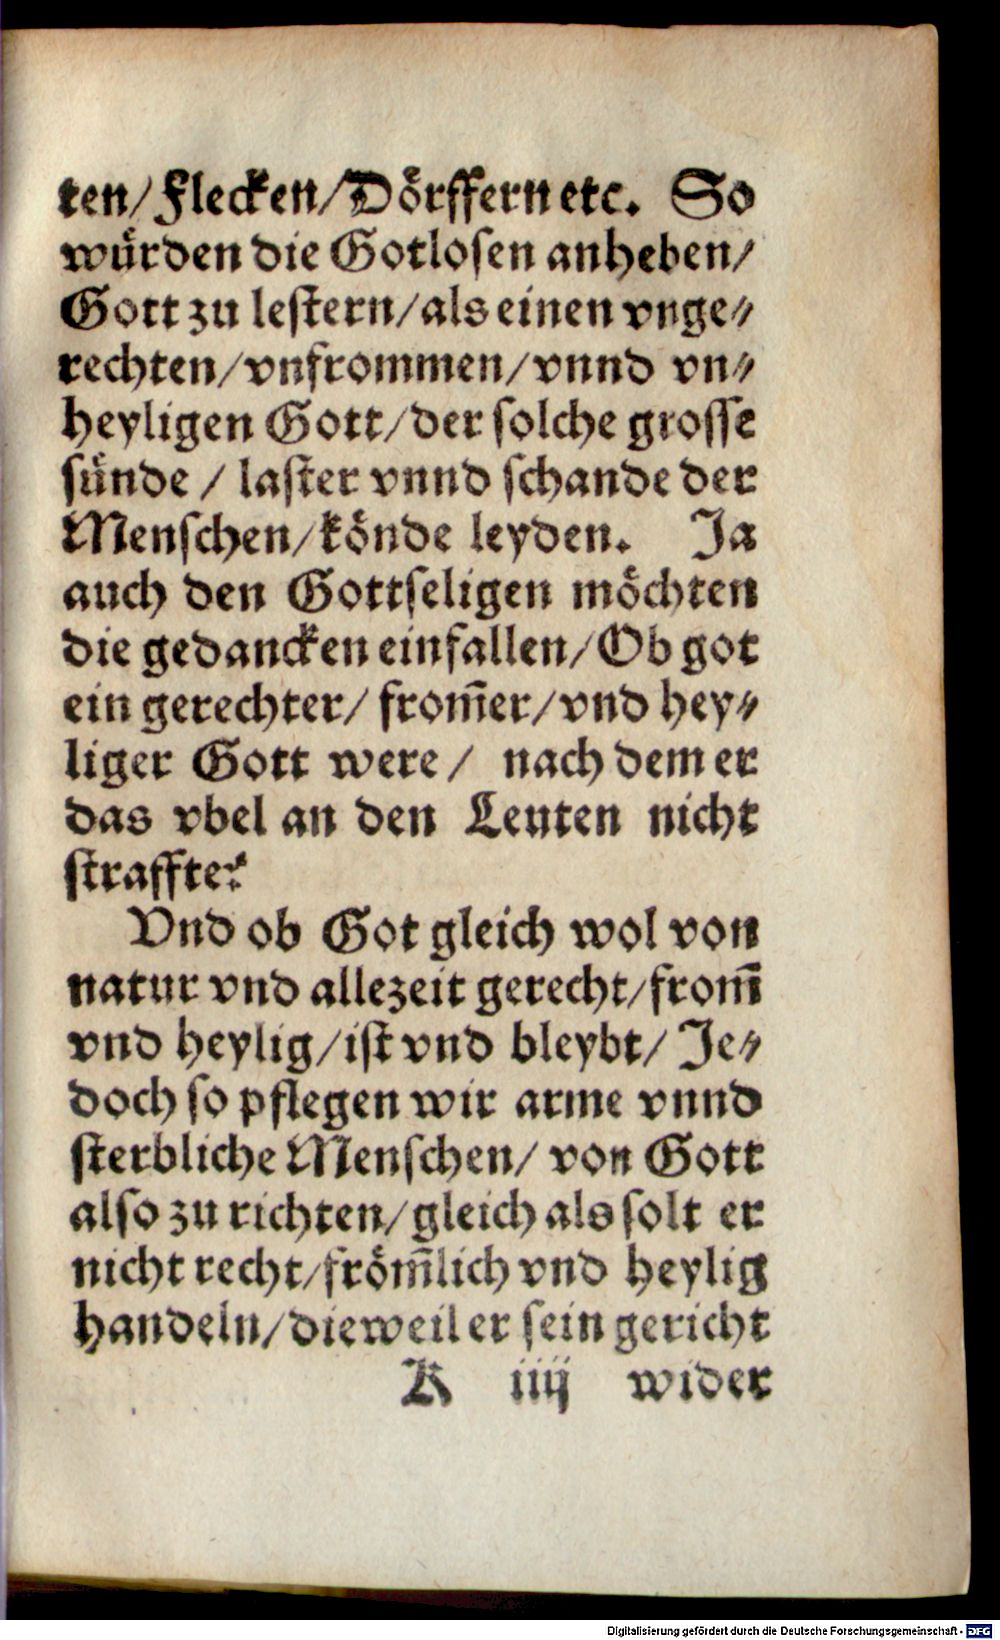 ten/ Flecken/ Dörffern etc. So
würden die Gotlosen anheben/
Gott zu lestern/ als einen vnge⸗
rechten/ vnfrommen/ vnnd vn⸗
heyligen Gott/ der solche grosse
sünde / laster vnnd schande der
Menschen/ könde leyden. Ja
auch den Gottseligen möchten
die gedancken einfallen/ Ob got
ein gerechter/ from̃er/ vnd hey⸗
liger Gott were/ nach dem er
das vbel an den Leuten nicht
straffte?
Vnd ob Got gleich wol von
natur vnd allezeit gerecht/ from̃
vnd heylig/ ist vnd bleybt/ Je⸗
doch so pflegen wir arme vnnd
sterbliche Menschen/ von Gott
also zu richten/ gleich als solt er
nicht recht/ fröm̃lich vnd heylig
handeln/ dieweil er sein gericht
K iiij wider
Digitalisierung gefördert durch die Deutsche Forschungsgemeinschaft - DFG